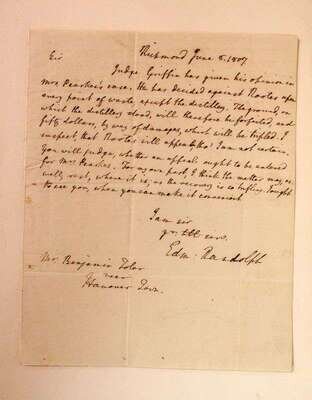 Richmond June 5. 1807
Sir
Judge Griffin has given his opinion in
Mrs Pearkes's case. He has decided against Rootes upon
every point of waste, except the distillery. The ground, on
which the distillery stood, will therefore be forfeited, and
fifty dollars, by way of damages, which will be tripled. I
suspect that Rootes will appeal; tho' I am not certain.
You will judge, whether an appeal ought to be entered
for Mrs Pearkes. For my own part, I think the matter may as
well, rest, where it is; as the recovery is so trifling. I ought
to see you, when you can make it convenient
I am sir
yr. obt serv.
Edm. Randolph
Mr. Benjamin Toler
near
Hanover Town.